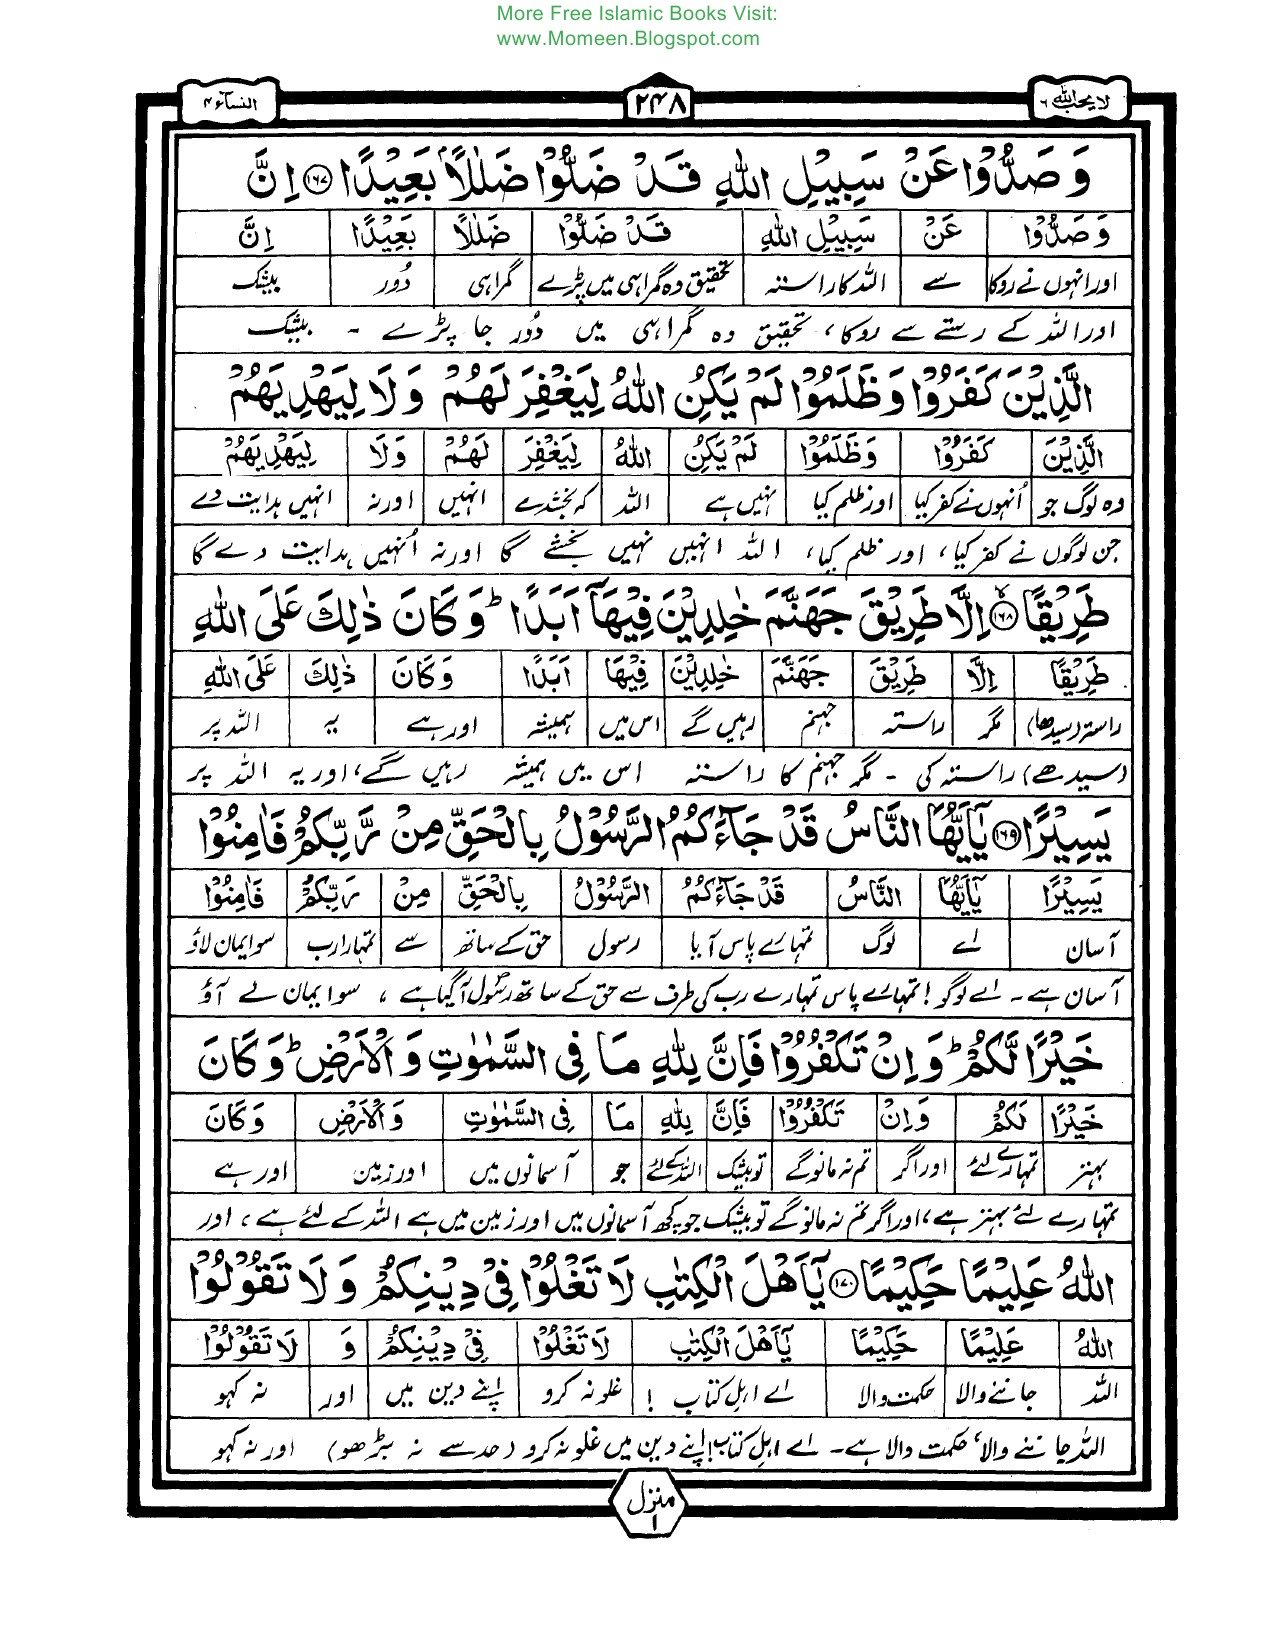 More Free Islamic Books Visit:
www.Momeen.Blogspot.com
لا یحب اللہ ۶
۲۴۸
النسآء ۴
وَ صَدُّوْا عَنْ سَبِیْلِ اللّٰہِ قَدْ ضَلُّوْا ضَلٰلًۢا بَعِیْدًا ﴿۱۶۷﴾ اِنَّ
وَ صَدُّوْا عَنْ سَبِیْلِ اللّٰہِ قَدْ ضَلُّوْا ضَلٰلًا بَعِیْدًا اِنَّ
اور انہوں نے روکا سے اللہ کا راستہ تحقیق وہ گمراہی میں پڑے گمراہی دُور بیشک
اور اللہ کے رستے سے روکا، تحقیق وہ گمراہی میں دُور جا پڑے ۔ بیشک
الَّذِیْنَ کَفَرُوْا وَ ظَلَمُوْا لَمْ یَکُنِ اللّٰہُ لِیَغْفِرَ لَہُمْ وَلَا لِیَہْدِیَہُمْ
الَّذِیْنَ کَفَرُوْا وَ ظَلَمُوْا لَمْ یَکُنِ اللّٰہُ لِیَغْفِرَ لَہُمْ وَلَا لِیَہْدِیَہُمْ
وہ لوگ جو اُنہوں نے کفر کیا اور ظلم کیا نہیں ہے اللہ کہ بخشدے انہیں اور نہ انہیں ہدایت دے
جن لوگوں نے کفر کیا، اور ظلم کیا، اللہ انہیں نہیں بخشے گا اور نہ اُنہیں ہدایت دے گا
طَرِیْقًا ﴿۱۶۸﴾ اِلَّا طَرِیْقَ جَہَنَّمَ خٰلِدِیْنَ فِیْہَآ اَبَدًا ؕ وَ کَانَ ذٰلِکَ عَلَی اللّٰہِ
طَرِیْقًا اِلَّا طَرِیْقَ جَہَنَّمَ خٰلِدِیْنَ فِیْہَا اَبَدًا وَ کَانَ ذٰلِکَ عَلَی اللّٰہِ
راستہ (سیدھا) مگر راستہ جہنم رہیں گے اس میں ہمیشہ اور ہے یہ اللہ پر
(سیدھے) راستہ کی ۔ مگر جہنم کا راستہ اس میں ہمیشہ رہیں گے، اور یہ اللہ پر
یَسِیْرًا ﴿۱۶۹﴾ یٰۤاَیُّہَا النَّاسُ قَدْ جَآءَکُمُ الرَّسُوْلُ بِالْحَقِّ مِنْ رَّبِّکُمْ فَاٰمِنُوْا
یَسِیْرًا یٰۤاَیُّہَا النَّاسُ قَدْ جَآءَکُمُ الرَّسُوْلُ بِالْحَقِّ مِنْ رَبِّکُمْ فَاٰمِنُوْا
آسان اے لوگ تمہارے پاس آیا رسول حق کے ساتھ سے تمہارا رب سو ایمان لاؤ
آسان ہے ۔ اے لوگو! تمہارے پاس تمہارے رب کی طرف سے حق کے ساتھ رسولؐ آگیا ہے، سو ایمان لے آؤ
خَیْرًا لَّکُمْ ؕ وَ اِنْ تَکْفُرُوْا فَاِنَّ لِلّٰہِ مَا فِی السَّمٰوٰتِ وَ الْاَرْضِ ؕ وَ کَانَ
خَیْرًا لَکُمْ وَ اِنْ تَکْفُرُوْا فَاِنَّ لِلّٰہِ مَا فِی السَّمٰوٰتِ وَ الْاَرْضِ وَ کَانَ
بہتر تمہارے لئے اور اگر تم نہ مانو گے تو بیشک اللہ کے لئے جو آسمانوں میں اور زمین اور ہے
تمہارے لئے بہتر ہے، اور اگر تم نہ مانو گے تو بیشک جو کچھ آسمانوں میں اور زمین میں ہے اللہ کے لئے ہے، اور
اللّٰہُ عَلِیْمًا حَکِیْمًا ﴿۱۷۰﴾ یٰۤاَہْلَ الْکِتٰبِ لَا تَغْلُوْا فِیْ دِیْنِکُمْ وَ لَا تَقُوْلُوْا
اللّٰہُ عَلِیْمًا حَکِیْمًا یٰۤاَہْلَ الْکِتٰبِ لَا تَغْلُوْا فِیْ دِیْنِکُمْ وَ لَا تَقُوْلُوْا
اللہ جاننے والا حکمت والا اے اہلِ کتاب ! غلو نہ کرو اپنے دین میں اور نہ کہو
اللہ جاننے والا، حکمت والا ہے۔ اے اہلِ کتاب! اپنے دین میں غلو نہ کرو (حد سے نہ بڑھو) اور نہ کہو
منزل ۱